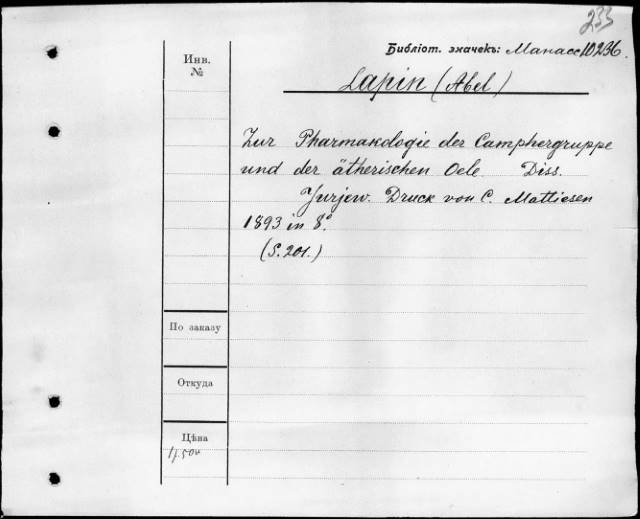 233
Библіот. значекъ: Манасс 10236.
Инв.
№
Lapin (Abel)
Zur Pharmakologie der Camphergruppe
und der ätherischen Oele Diss.
Jurjew. Druck von C. Mattiesen
1893 in 8°.
(S. 201.)
По заказу
Откуда
Цѣна